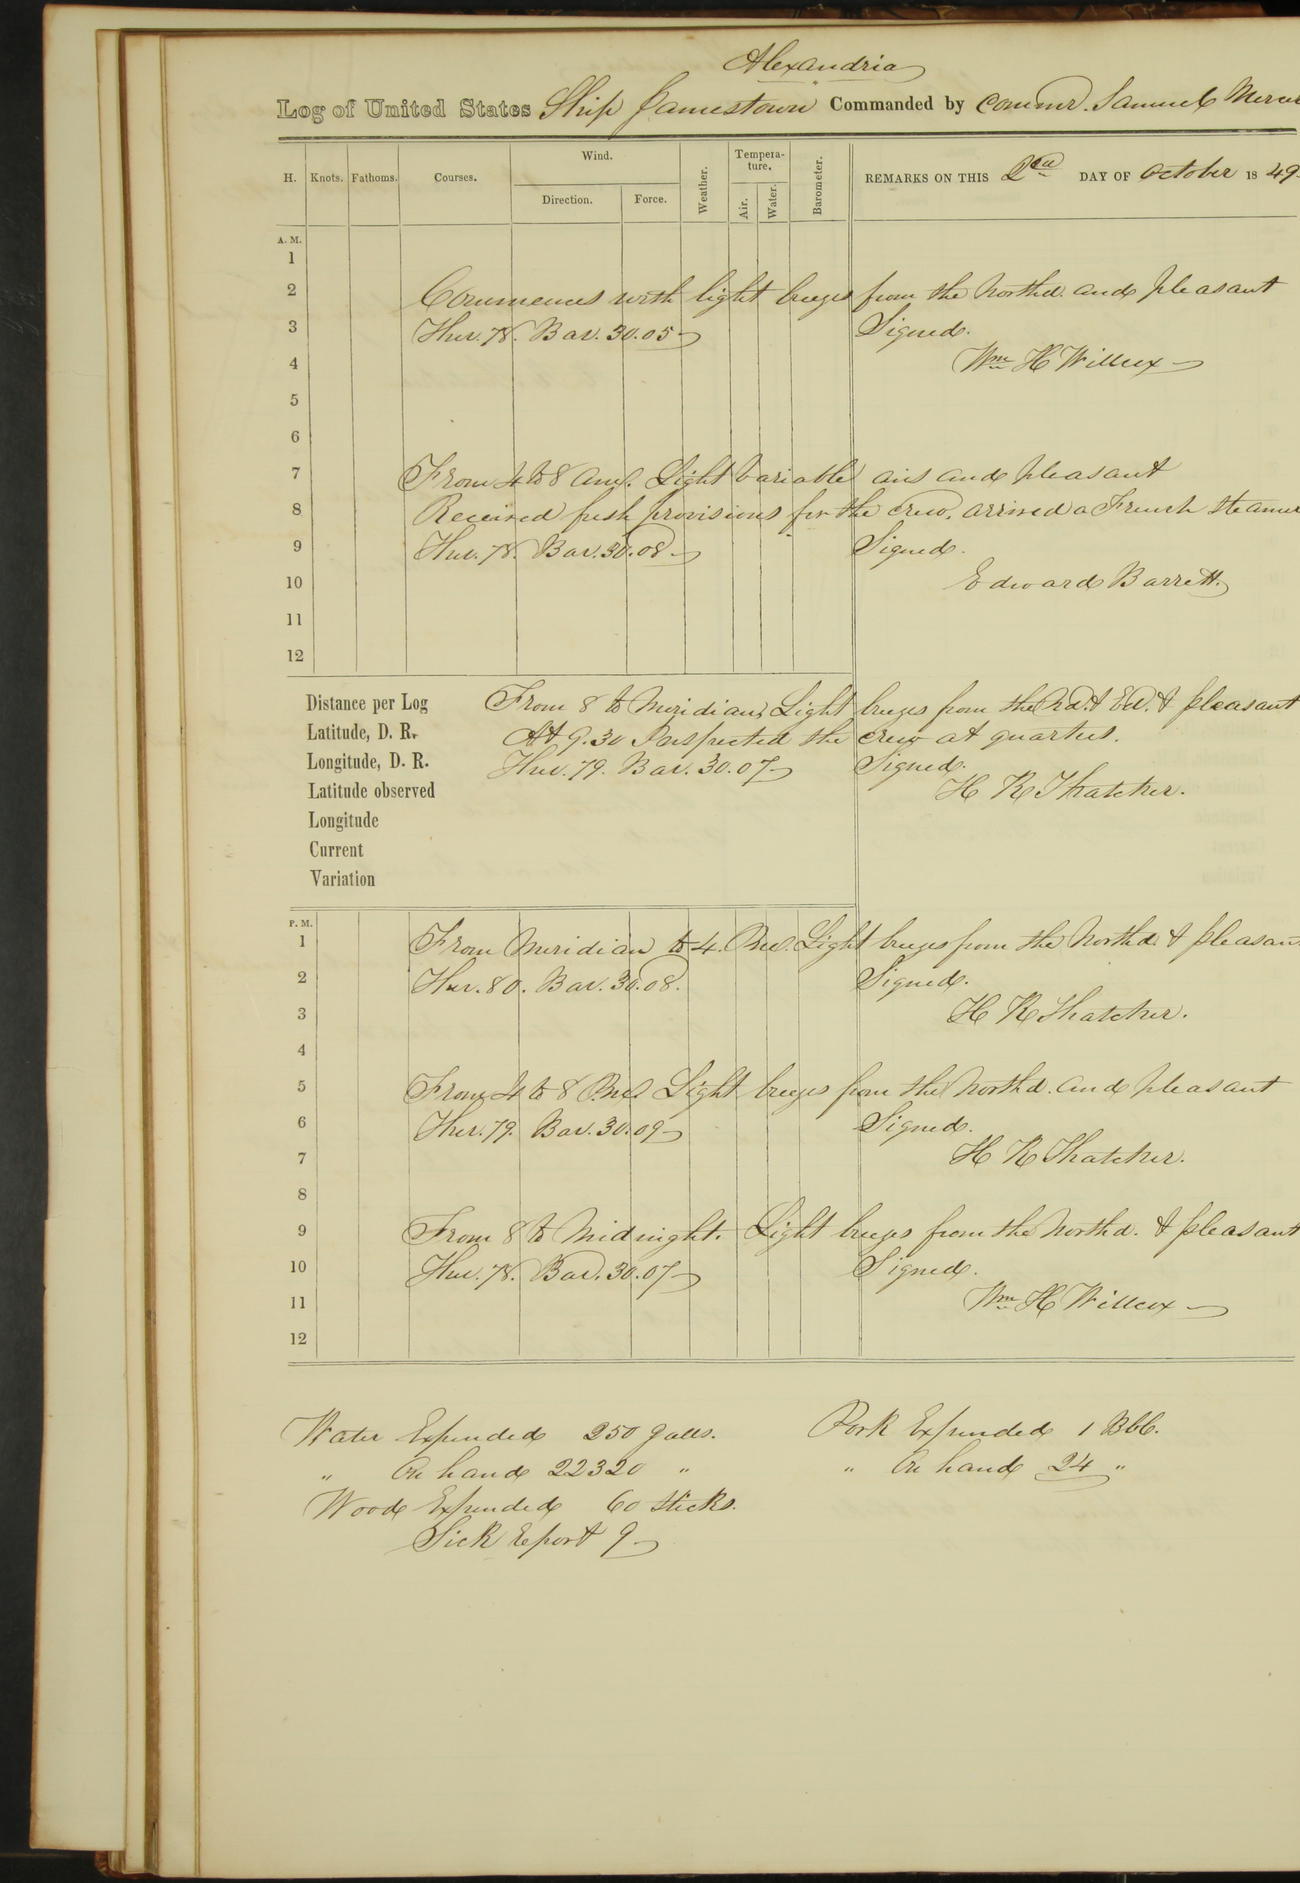 Alexandria
Log of United States Ship Jamestown Commanded by Commr. Samuel Mercer
H. Knots. Fathoms. Courses. Wind. Direction. Force. Weather. Tempera-ture. Air. Water. Barometer. REMARKS ON THIS 2nd DAY OF October 18 49.
A. M.
1
2 Commences with light breezes from the Northd. and pleasant
3 Ther. 78. Bar. 30.05 Signed.
4 Wm H Willcox
5
6
7 From 4 to 8 Am. Light variable airs and pleasant
8 Received fresh provisions for the crew. arrived a French Steamer
9 Ther. 78. Bar. 30.08 Signed.
10 Edward Barrett.
11
12
Distance per Log From 8 to Meridian, Light breezes from the Nd. & Ed. & pleasant
Latitude, D. R. At 9.30 Inspected the crew at quarters.
Longitude, D. R. Ther. 79. Bar. 30.07 Signed.
Latitude observed H K Thatcher.
Longitude
Current
Variation
P. M.
1 From Meridian to 4. Pm. Light breezes from the Northd. & pleasant
2 Ther. 80. Bar. 30.08. Signed.
3 H K Thatcher.
4
5 From 4 to 8 P.m. Light breezes from the Northd. and pleasant
6 Ther. 79. Bar. 30.09 Signed.
7 H K Thatcher.
8
9 From 8 to Midnight. Light breezes from the Northd. & pleasant
10 Ther. 78. Bar. 30.07 Signed.
11 Wm H Willcox
12
Water Expended 250 galls. Pork Expended 1 Bbl.
" On hand 22320 " " On hand 24 "
Wood Expended 60 sticks.
Sick report 9